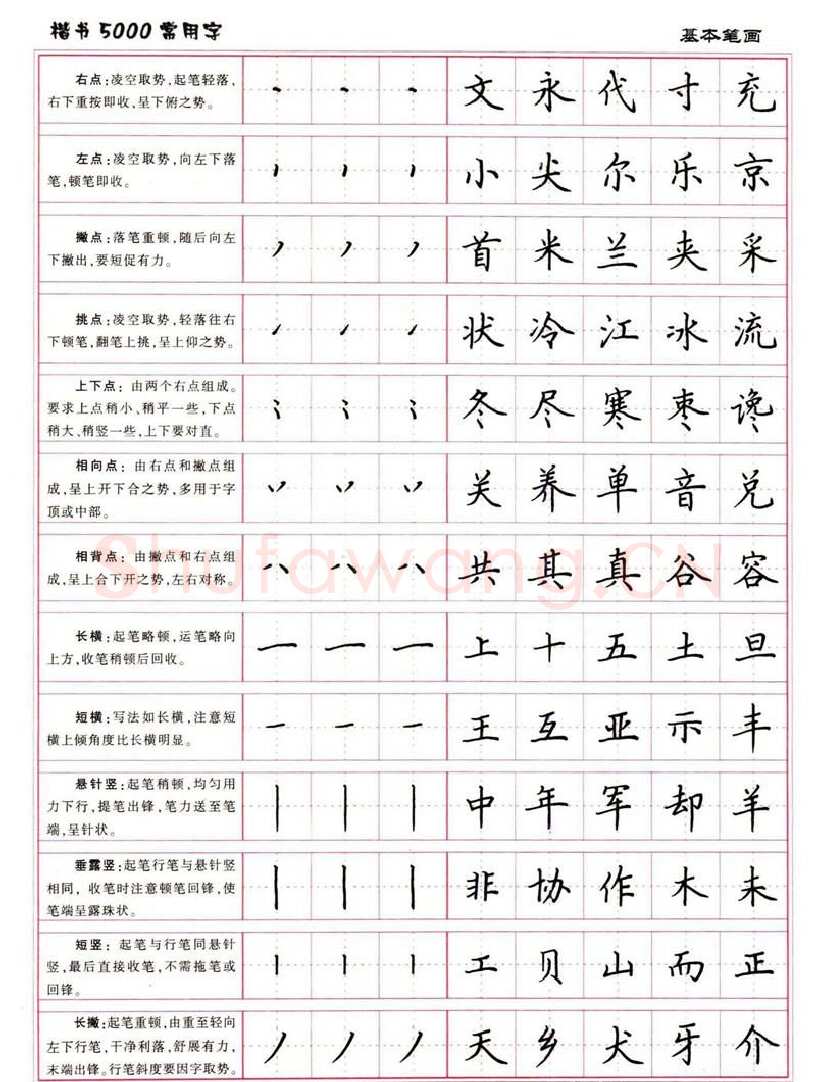 楷书5000常用字
基本笔画
右点:凌空取势,起笔轻落,
右下重按即收,呈下俯之势。
文 永 代 寸 充
左点:凌空取势,向左下落
笔,顿笔即收。
小 尖 尔 乐 京
撇点:落笔重顿,随后向左
下撇出,要短促有力。
首 米 兰 夹 采
挑点:凌空取势,轻落往右
下顿笔,翻笔上挑,呈上仰之势。
状 冷 江 冰 流
上下点: 由两个右点组成。
要求上点稍小,稍平一些,下点
稍大、稍竖一些,上下要对直。
冬 尽 寒 枣 谗
相向点: 由右点和撇点组
成,呈上开下合之势,多用于字
顶或中部。
关 养 单 音 兑
相背点: 由撇点和右点组
成,呈上合下开之势,左右对称。
共 其 真 谷 容
Shufawang.CN
长横:起笔略顿,运笔略向
上方,收笔稍顿后回收。
上 十 五 土 旦
短横:写法如长横,注意短
横上倾角度比长横明显。
王 互 亚 示 丰
悬针竖:起笔稍顿,均匀用
力下行,提笔出锋,笔力送至笔
端,呈针状。
中 年 军 却 羊
垂露竖:起笔行笔与悬针竖
相同, 收笔时注意顿笔回锋,使
笔端呈露珠状。
非 协 作 木 未
短竖: 起笔与行笔同悬针
竖,最后直接收笔,不需拖笔或
回锋。
工 贝 山 而 正
长撇:起笔重顿,由重至轻向
左下行笔,干净利落,舒展有力,
末端出锋。行笔斜度要因字取势。
天 乡 犬 牙 介